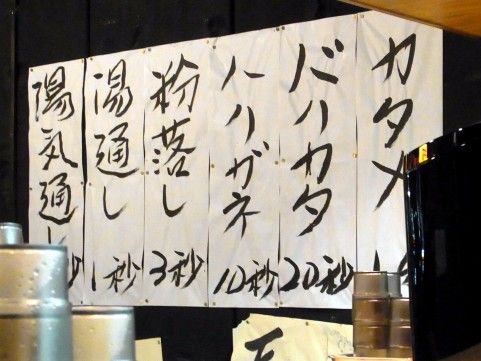 カタメ
バリカタ 20秒
ハリガネ 10秒
粉落し 3秒
湯通し 1秒
湯気通し